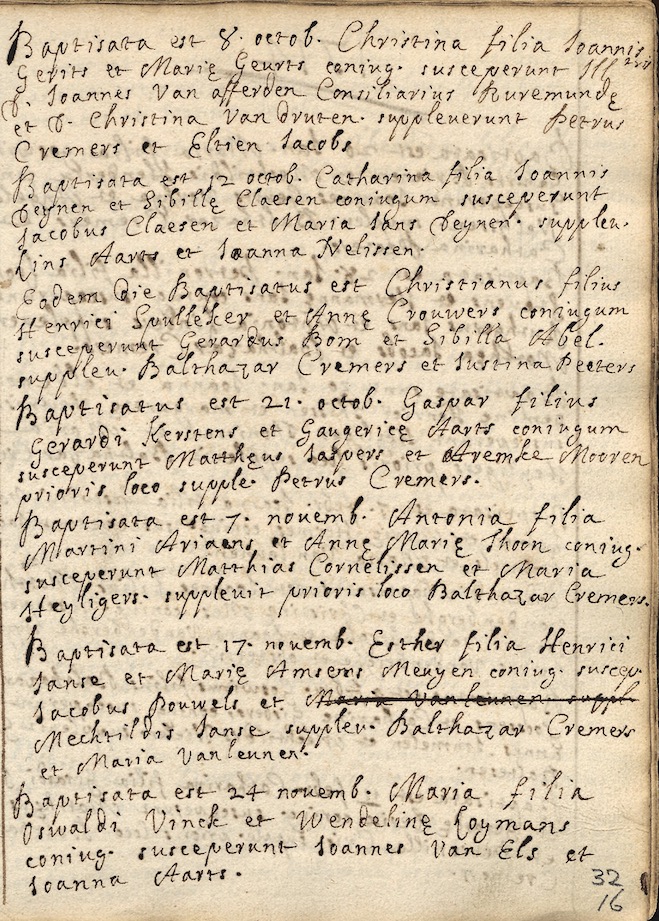 Baptisata est 8. octob. Christina filia Ioannis
Gerits et Marię Geurts coniug. susceperunt Ill
D. Ioannes Van afferden Consiliarius Ruremundę
et D. Christina Van druten. suppleverunt Petrus
Cremers et Eltien Iacobs
Baptisata est 12 octob. Catharina filia Ioannis
Deynen et Sibillę Claesen coniugum susceperunt
Iacobus Claesen et Maria Ians Deynen. supplev.
Lins Aarts et Ioanna Nelissen.
Eodem die Baptisatus est Christianus filius
Henrici Spulleker et Annę Crouwers coniugum
susceperunt Gerardus Bom et Sibilla Abel.
supplev. Balthazar Cremers et Iustina Peeters
Baptisatus est 21. octob. Gaspar filius
Gerardi Kerstens et Gaugericę Aarts coniugum
susceperunt Matthęus Iaspers et Aremke Mooren
prioris loco supple. Petrus Cremers.
Baptisata est 7. novemb. Antonia filia
Martini Ariaens et Annę Marię Thoon coniug.
susceperunt Matthias Cornelissen et Maria
Heyligers. supplevit prioris loco Balthazar Cremers.
Baptisata est 17. novemb. Esther filia Henrici
Ianse et Marię Amsems Meuyen coniug. suscep.
Iacobus Pouwels et Maria Vanleunen. suppl
Mechtildis Ianse supplev. Balthazar Cremers
et Maria Vanleunen.
Baptisata est 24 novemb. Maria filia
Oswaldi Vinck et Wendelinę Loymans
coniug. susceperunt Ioannes Van Els et
Ioanna Aarts.
32
16